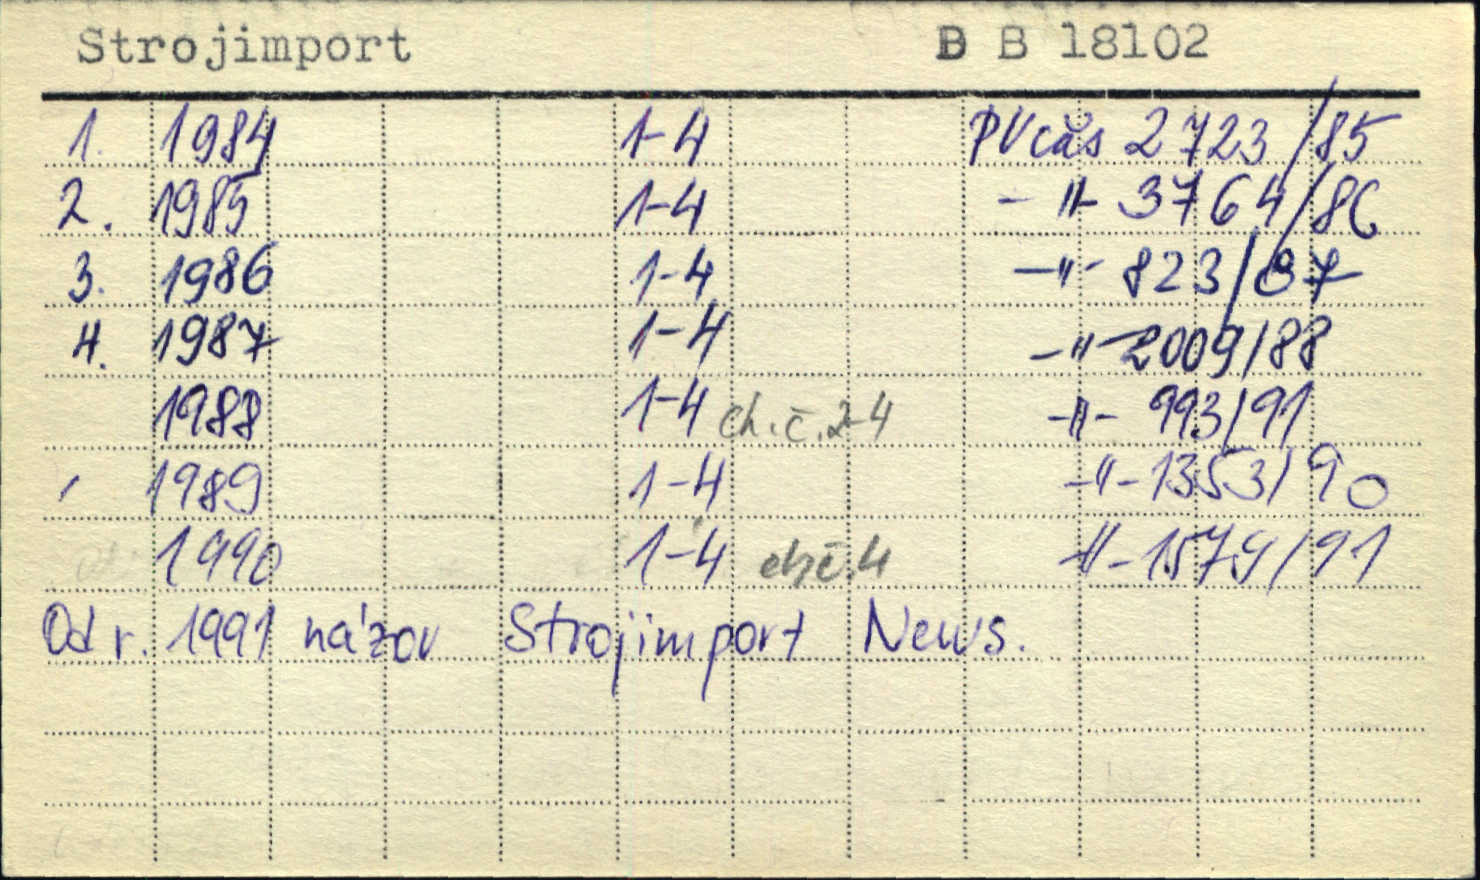 Strojimport B B 18102
1. 1984 1-4 PVčas 2723/85
2. 1985 1-4 -"- 3764/86
3. 1986 1-4 -"- 823/87
4. 1987 1-4 -"- 2009/88
1988 1-4 ch.č.2-4 -"- 993/91
1989 1-4 -"- 1353/90
1990 1-4 ch.č.4 -"- 1579/91
Od r. 1991 názov Strojimport News.